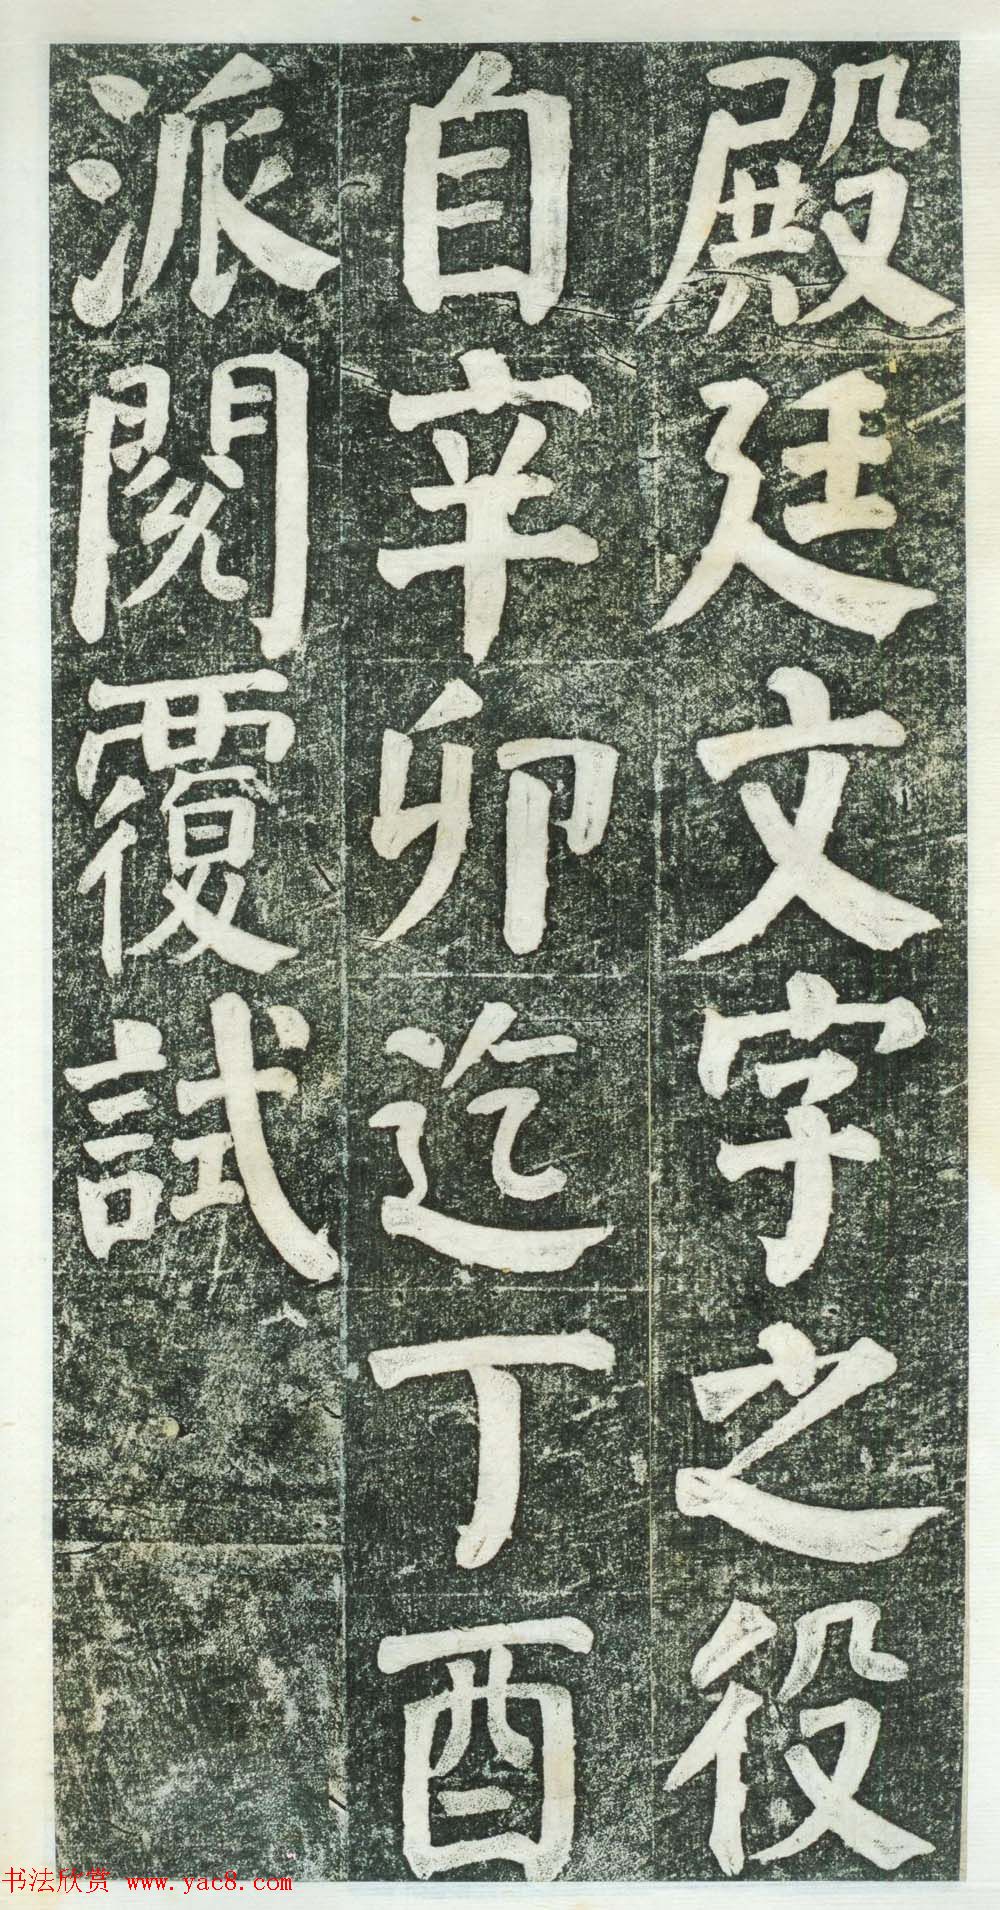 殿廷文字之役
自辛卯迄丁酉
派閱覆試
书法欣赏 www.yac8.com